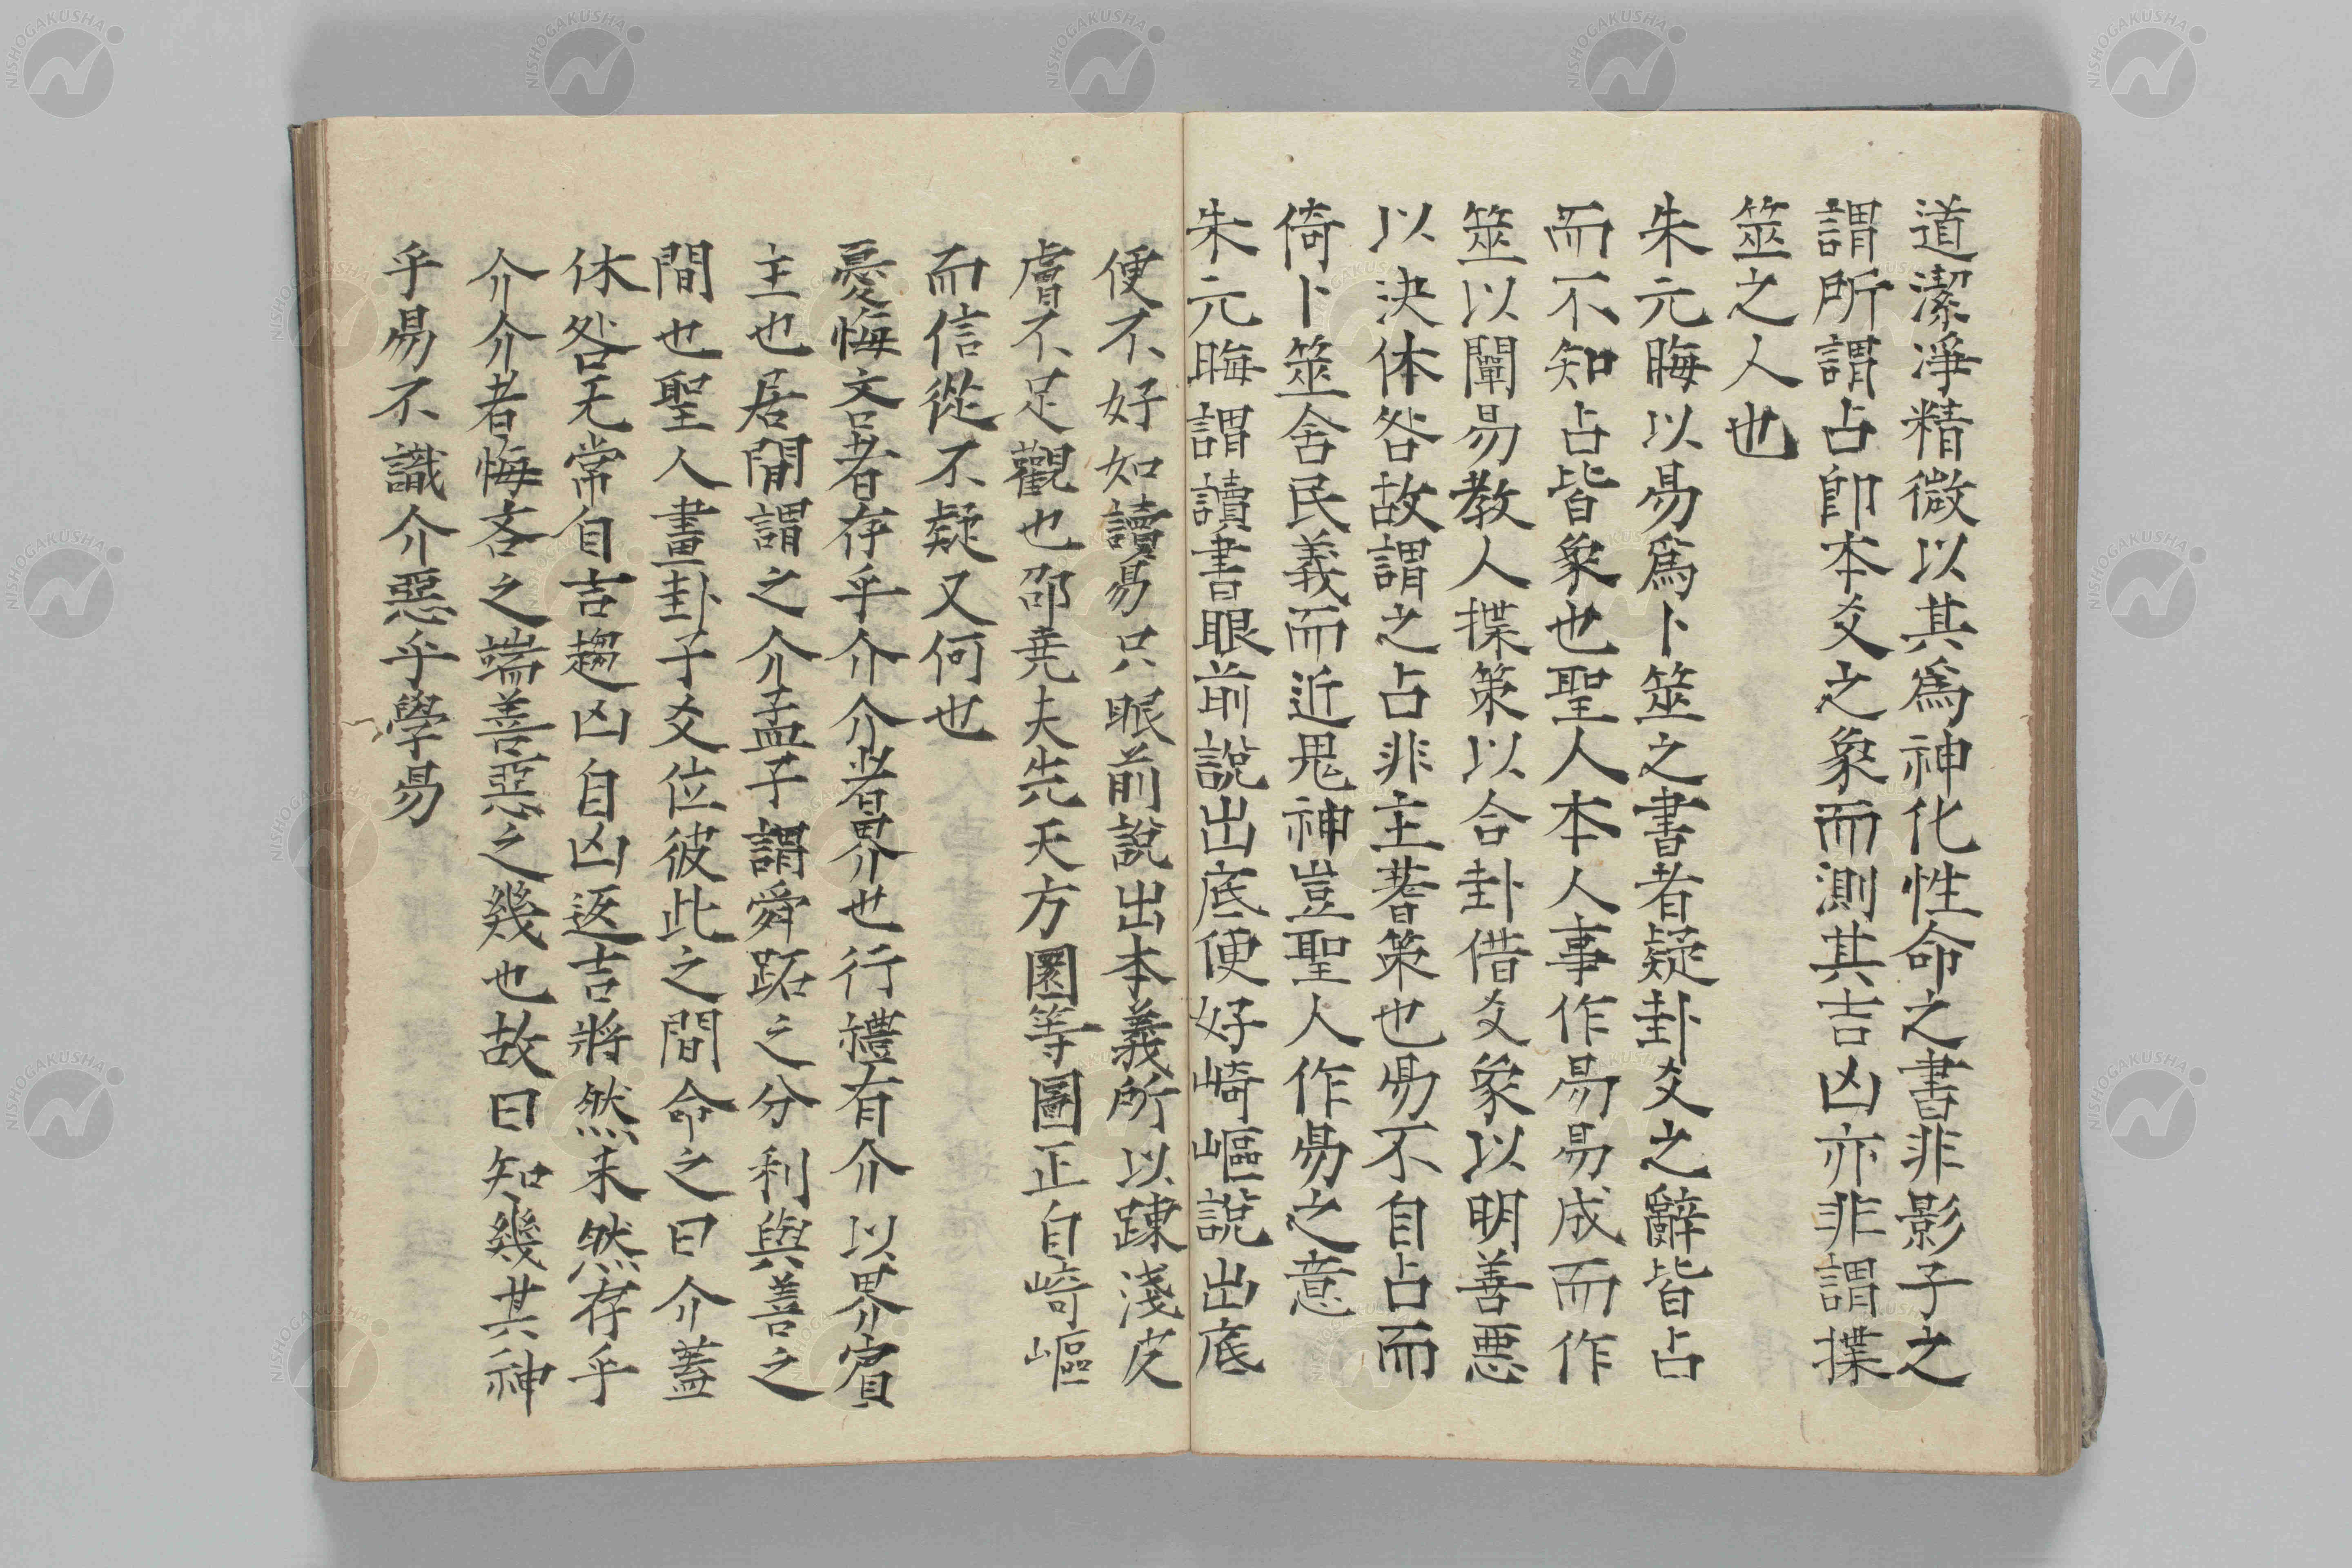 道潔淨精微以其爲神化性命之書非影子之
謂所謂占卽本爻之象而測其吉凶亦非謂揲
筮之人也
朱元晦以易爲卜筮之書者疑卦爻之辭皆占
而不知占皆象也聖人本人事作易易成而作
筮以闡易教人揲策以合卦借爻象以明善悪
以決休咎故謂之占非主蓍策也易不自占而
倚卜筮舍民義而近鬼神豈聖人作易之意
朱元晦謂讀書眼前說出底便好崎嶇說出底
便不好如讀易只眼前說出本義所以踈淺皮
膚不足觀也邵堯夫先天方圓等圖正自崎嶇
而信從不疑又何也
憂悔吝者存乎介介者界也行禮有介以界賓
主也居間謂之介孟子謂舜跖之分利與善之
間也聖人畫卦于爻位彼此之間命之曰介蓋
休咎无常自吉趨凶自凶返吉將然未然存乎
介介者悔吝之端善惡之幾也故曰知幾其神
乎易不識介惡乎學易
NISHOGAKUSHA